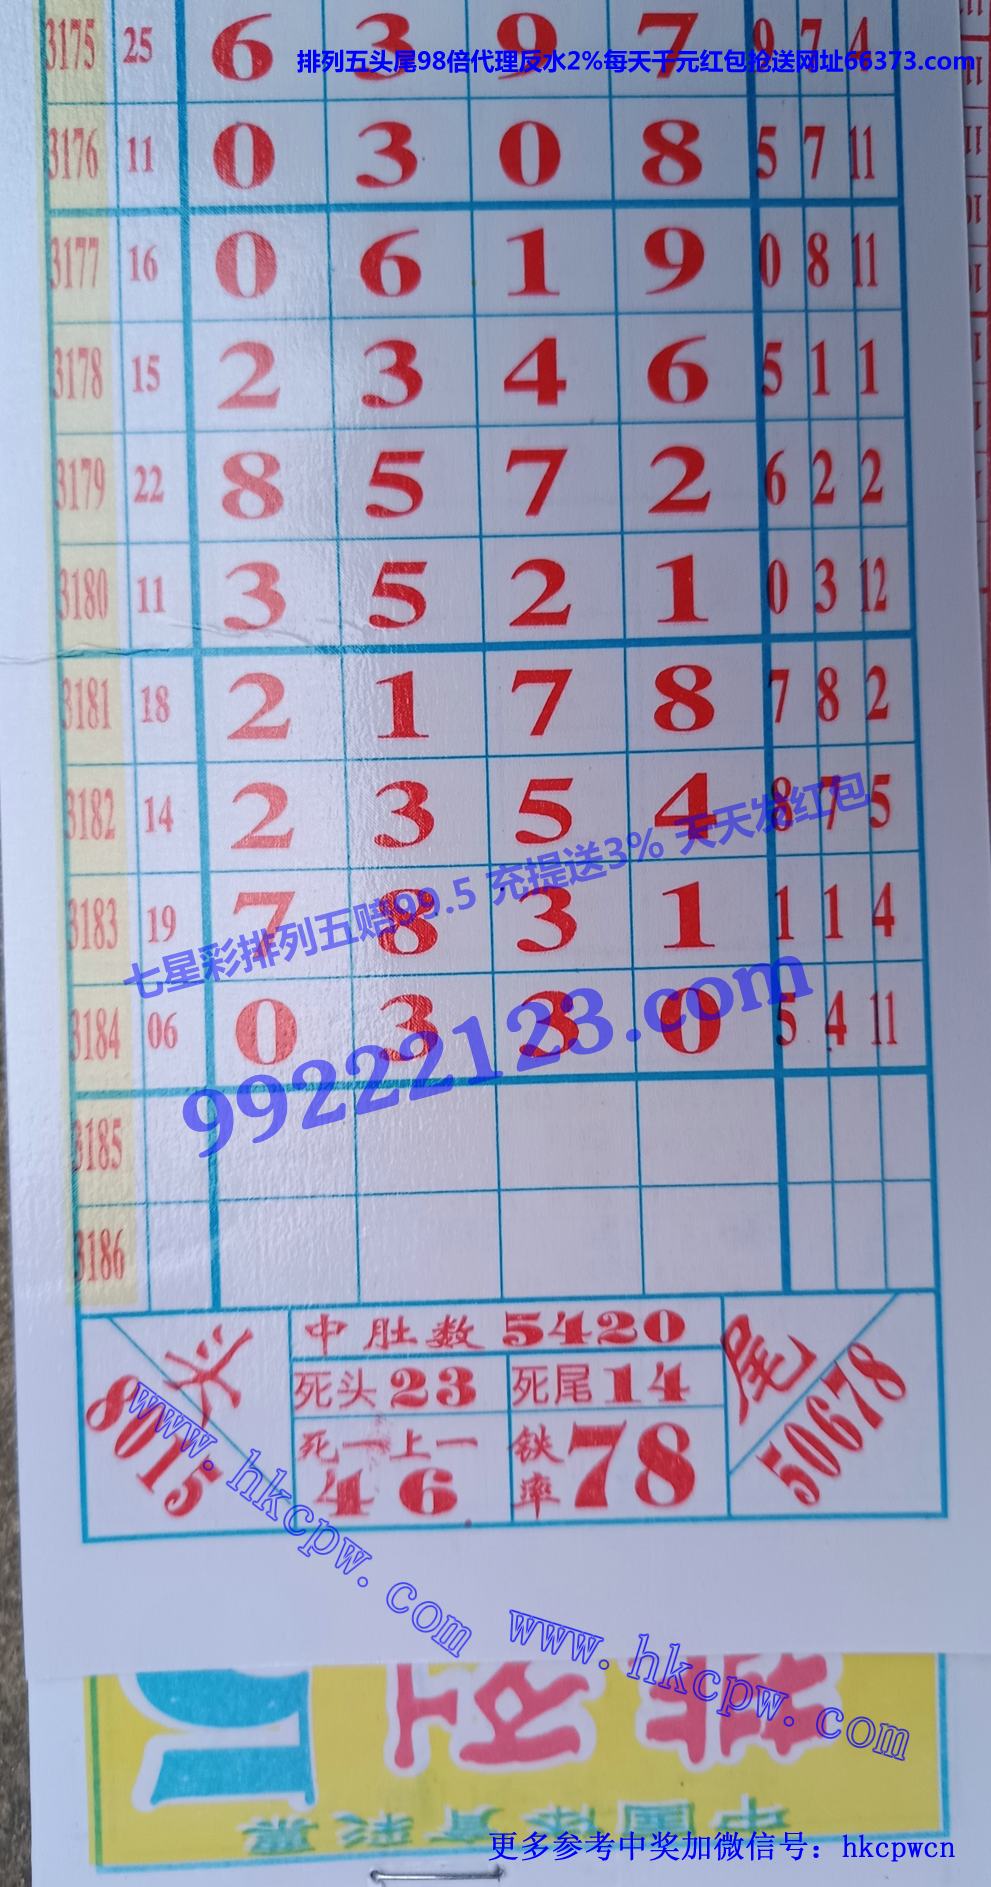 3175 25 6 3 9 7 9 7 4
排列五头尾98倍代理反水2%每天千元红包抢送网址66373.com
3176 11 0 3 0 8 5 7 11
3177 16 0 6 1 9 0 8 11
3178 15 2 3 4 6 5 1 1
3179 22 8 5 7 2 6 2 2
3180 11 3 5 2 1 0 3 12
3181 18 2 1 7 8 7 8 2
3182 14 2 3 5 4 8 7 5
七星彩排列五赔99.5 充提送3% 天天发红包
3183 19 7 8 3 1 1 1 4
99222123.com
3184 06 0 3 3 0 5 4 11
3185
3186
头
8015
中肚数 5420
死头 23
死尾 14
死一上一
46
铁率 78
尾
50678
www.hkcpw.com
www.hkcpw.com
排列
中国体育彩票
更多参考中奖加微信号：hkcpwcn